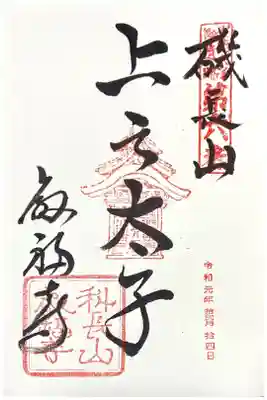 磯長山
上之太子
叡福寺
科長山
令和元年 月拾四日